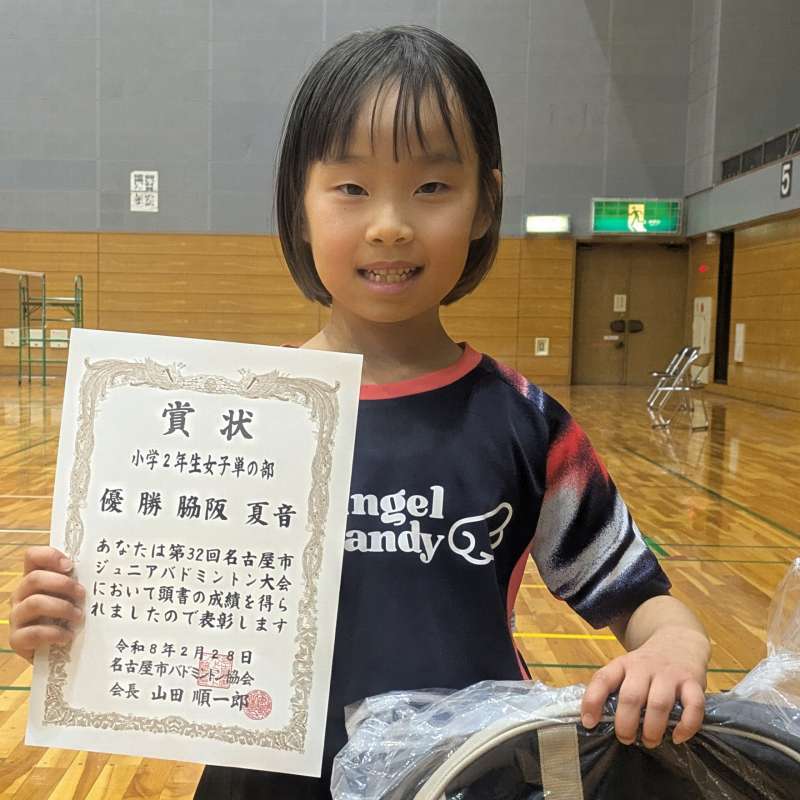 賞状
小学2年生女子単の部
優勝 脇阪 夏音
あなたは第32回名古屋市
ジュニアバドミントン大会
において頭書の成績を得ら
れましたので表彰します
令和8年2月28日
名古屋市バドミントン協会
会長 山田 順一郎
ngel
andy
5